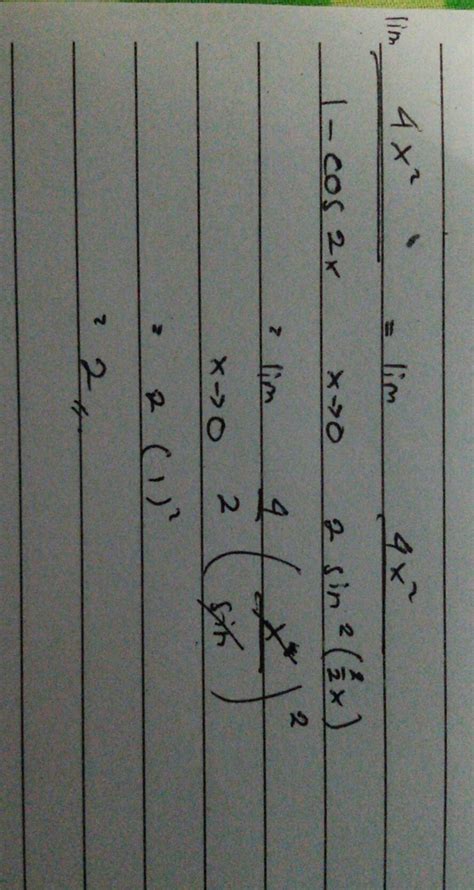 lim 4x² / 1 - cos 2x = lim x→0 4x² / 2 sin² (2/2 x)
= lim x→0 4/2 (x/sin)²
= 2 (1)²
= 2 //